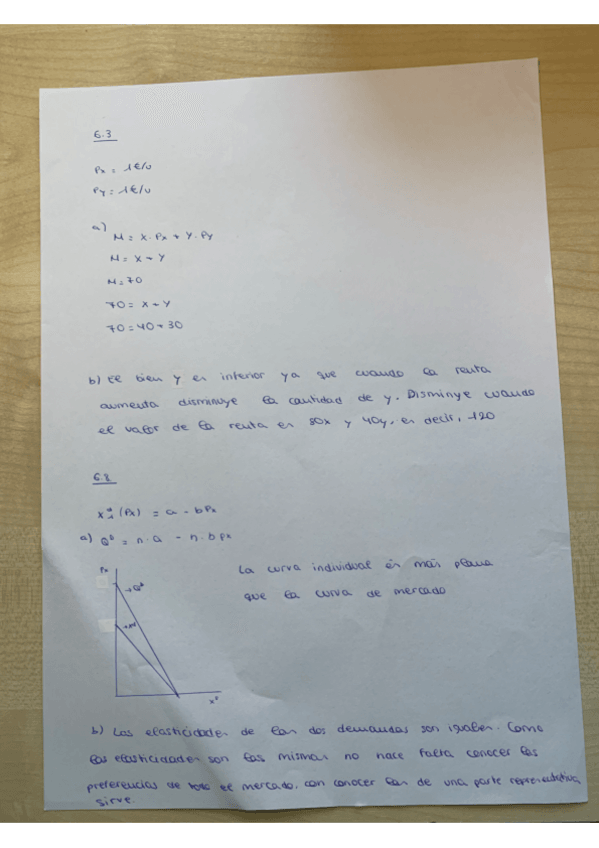 6.3
Px = 1€/u
Py = 1€/u
a)
M = x. Px + y. Py
M = x + y
M = 70
70 = x + y
70 = 40 + 30
b) El bien y es inferior ya que cuando la renta
aumenta disminuye la cantidad de y. Disminye cuando
el valor de la renta es 80x y 40y, es decir, 120
6.8
(Px) = a - bPx
a) = n.a - n.bPx
Px
La curva individual es más plana
que la curva de mercado
b) Las elasticidades de las dos demandas son iguales. Como
las elasticidades son las mismas no hace falta conocer las
preferencias de todo el mercado, con conocer las de una parte representativa
sirve.